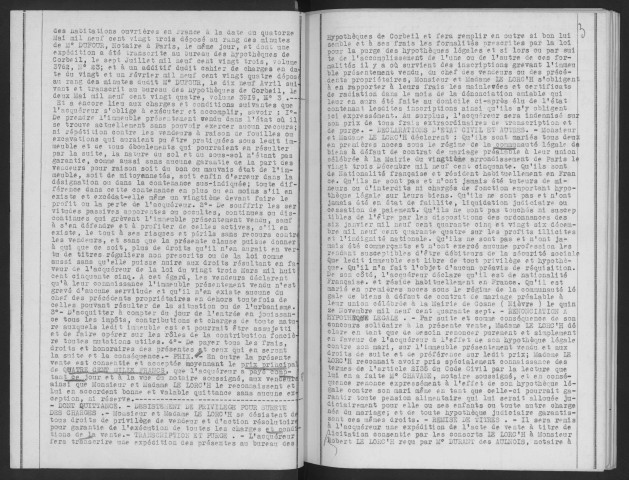 des habitations ouvrières en France à la date du quatorze
Mai mil neuf cent vingt trois déposé au rang des minutes
de Me DUFOUR, Notaire à Paris, le même jour, et dont une
expédition a été transcrite au bureau des hypothèques de
Corbeil, le sept Juillet mil neuf cent vingt trois, volume
et à un additif audit cahier de charges en da-
te du vingt et un Février mil neuf cent vingt quatre déposé
au rang des minutes dudit Me DUFOUR, le dix neuf Avril sui-
vant et transcrit au bureau des hypothèques de Corbeil, le
deux Mai mil neuf cent vingt quatre, volume
Et à encore lieu aux charges et conditions suivantes que
l'acquéreur s'oblige à exécuter et accomplir, savoir : 1°-
De prendre l'immeuble présentement vendu dans l'état où il
se trouve actuellement sans pouvoir exercer aucun recours,
ni répétition contre les vendeurs à raison de fouilles ou
excavations qui auraient pu être pratiquées sous ledit im-
meuble et de tous éboulements qui pourraient en résulter
par la suite, la nature du sol et du sous-sol n'étant pas
garantie, comme aussi sans aucune garantie de la part des
vendeurs pour raison soit du bon ou mauvais état de l'im-
meuble, soit de mitoyennetés, soit enfin d'erreur dans la
désignation ou dans la contenance sus-indiquée; toute dif-
férence dans cette contenance en plus ou en moins s'il en
existe et excédât-elle même un vingtième devant faire le
profit ou la perte de l'acquéreur. 2°- De souffrir les ser-
vitudes passives apparentes ou occultes, continues ou dis-
continues qui grèvent l'immeuble présentement vendu, sauf
à s'en défendre et à profiter de celles actives, s'il en
existe, le tout à ses risques et périls sans recours contre
les vendeurs, et sans que la présente clause puisse donner
à qui que ce soit, plus de droits qu'il n'en aurait en ver-
tu de titres réguliers non prescrits ou de la loi comme
aussi sans qu'elle puisse nuire aux droits résultant en fa-
veur de l'acquéreur de la loi du vingt trois Mars mil huit
cent cinquante cinq. A cet égard, les vendeurs déclarent
qu'à leur connaissance l'immeuble présentement vendu n'est
grevé d'aucune servitude et qu'il n'en existe aucune du
chef des précédents propriétaires en dehors toutefois de
celles pouvant résulter de la situation ou de l'urbanisme.
3°- D'acquitter à compter du jour de l'entrée en jouissan-
ce tous les impôts, contributions et charges de toute natu-
re auxquels ledit immeuble est et pourrait être assujetti
et de faire opérer sur les rôles de la contribution fonciè-
re toutes mutations utiles. 4°- De payer tous les frais,
droits et honoraires des présentes et ceux qui en seront
la suite et la conséquence.- PRIX.- En outre la présente
vente est consentie et acceptée moyennant le prix principal
de QUATRE CENT MILLE FRANCS, que l'acquéreur a payé comp-
tant ce jour et à la vue du notaire soussigné, aux vendeurs
ainsi que Monsieur et Madame LE LORC'H le reconnaissent et
lui en accordent bonne et valable quittance sans aucune ex-
ception, ni réserve.
- DONT QUITTANCE.- DESISTEMENT DE PRIVILEGE POUR SURETE
DES CHARGES.- Monsieur et Madame LE LORC'H se désistent de
tous droits de privilège de vendeur et d'action résolutoire
pour garantie de l'exécution de toutes les charges et condi-
tions de la vente.- TRANSCRIPTION ET PURGE.- L'acquéreur
fera transcrire une expédition des présentes au bureau des
3
hypothèques de Corbeil et fera remplir en outre si bon lui
semble et à ses frais les formalités prescrites par la loi
pour la purge des hypothèques légales et si lors ou par sui-
te de l'accomplissement de l'une ou de l'autre de ces for-
malités il y a ou survient des inscriptions grevant l'immeu-
ble présentement vendu, du chef des vendeurs ou des précé-
dents propriétaires, Monsieur et Madame LE LORC'H s'obligent
à en rapporter à leurs frais les mainlevées et certificats
de radiation dans le mois de la dénonciation amiable qui
leur en aura été faite au domicile ci-après élu de l'état
contenant lesdites inscriptions ainsi qu'ils s'y obligent
ici expressément. Au surplus, l'acquéreur sera indemnisé sur
son prix de tous frais extraordinaires de transcription et
de purge.- DECLARATIONS D'ETAT CIVIL ET AUTRES.- Monsieur
et Madame LE LORC'H déclarent : Qu'ils sont mariés tous deux
en premières noces sous le régime de la communauté légale de
biens à défaut de contrat de mariage préalable à leur union
célébrée à la Mairie du vingtième arrondissement de Paris le
vingt trois Décembre mil neuf cent dix cinquante. Qu'ils sont
de Nationalité Française et résident habituellement en Fran-
ce. Qu'ils ne sont pas et n'ont jamais été tuteurs de mi-
neurs ou d'interdits ni chargés de fonction emportant hypo-
thèque légale sur leurs biens. Qu'ils ne sont pas et n'ont
jamais été en état de faillite, liquidation judiciaire ou
cessation de paiement. Qu'ils ne sont pas touchés ni suscep-
tibles de l'être par les dispositions des ordonnances des
six janvier mil neuf cent quarante cinq
sur les profits illicites
et l'indignité nationale. Qu'ils ne sont pas et n'ont ja-
mais été commerçants et n'ont exercé aucune profession les
rendant susceptibles d'être débiteurs de la sécurité sociale
Que ledit immeuble est libre de tout privilège et hypothè-
que. Qu'il n'a fait l'objet d'aucun préavis de réquisition.
De son côté, l'acquéreur déclare qu'il est de nationalité
Française, et réside habituellement en France. Qu'il est
marié en premières noces sous le régime de la communauté lé-
gale de biens à défaut de contrat de mariage préalable à
leur union célébrée à la Mairie de Cosne ( Nièvre ) le quin-
ze Novembre mil neuf cent quarante sept.- RENONCIATION A
HYPOTHEQUE LEGALE.- Par suite et comme conséquence de son
concours solidaire à la présente vente, Madame LE LORC'H dé-
clare en tant que de besoin renoncer purement et simplement
en faveur de l'acquéreur à l'effet de son hypothèque légale
contre son mari, sur l'immeuble présentement vendu et aux
droits de suite et de préférence sur ledit prix; Madame LE
LORC'H reconnaît avoir pris spécialement connaissance des
termes de l'article 2135 du Code Civil par la lecture que
lui en a faite Me notaire soussigné, et en consé-
quence renonce expressément à l'effet de son hypothèque lé-
gale contre son mari même en tant que celle-ci pourrait ga-
rantir toute pension alimentaire qui lui serait allouée ju-
diciairement pour elle ou ses enfants ou toute autre charge
née du mariage; et de toute hypothèque judiciaire garantis-
sant ces mêmes droits.- REMISE DE TITRES.- Il sera remis
à l'acquéreur une expédition de l'acte de vente à titre de
licitation consentie par les consorts LE LORC'H à Monsieur
Robert LE LORC'H reçu par Me DURANT des AULNOIS, notaire à